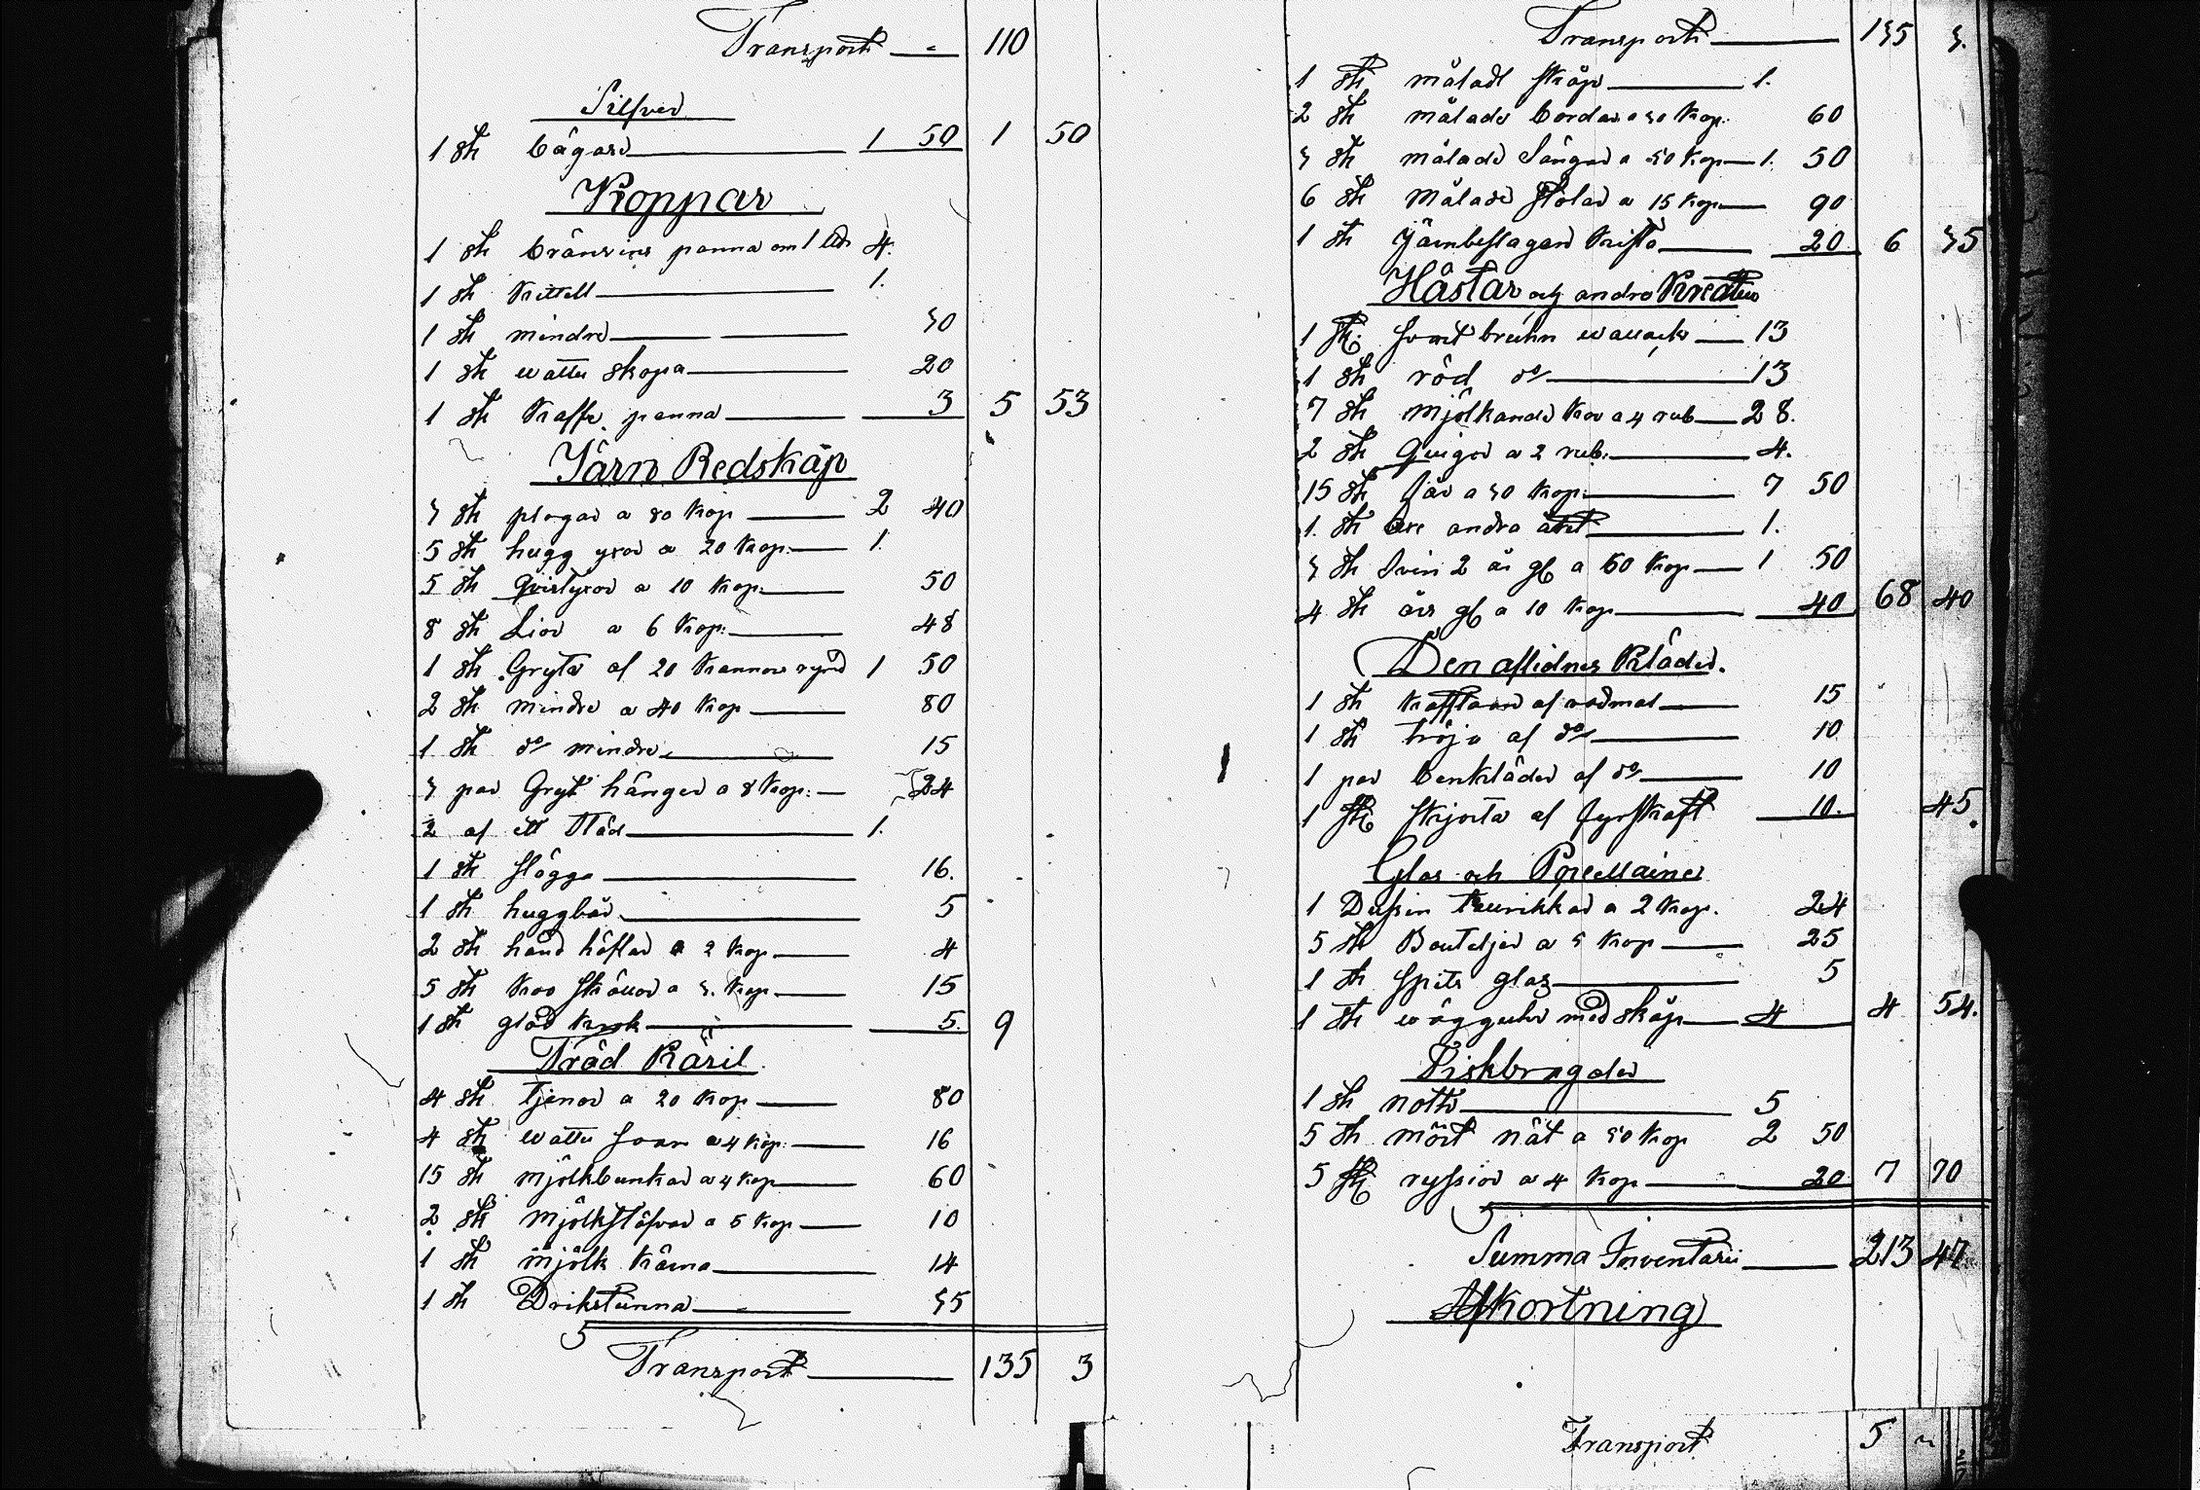 Transport — 110
Silfver
1 St bägare — 1 50 1 50
Koppar
1 St bränvins panna om 1 4.
1 St Kittell — 1.
1 St mindre — 30
1 St wattu skopa — 20
1 St Kaffe panna — 3 5 53
Järn Redskap
3 St plogar a 80 Kop — 2 40
5 St hugg yxor a 20 Kop. — 1.
5 St Qvistyxor a 10 Kop. — 50
8 St Liar a 6 Kop: — 48
1 St Gryta af 20 Kannors rymd 1 50
2 St mindre a 40 Kop — 80
1 St do mindre — 15
3 par Gryt hänger a 8 Kop: — 24
2 af ett Städ — 1.
1 St slägga — 16.
1 St huggbär — 5
2 St hand höflar a 2 Kop — 4
5 St Koo skällor a 3. Kop — 15
1 St glöd Krok — 5. 9
Träd Käril
4 St tjenor a 20 Kop — 80
4 St wattu såar a 4 Kop: — 16
15 St mjölkbunkar a 4 Kop — 60
2 St mjölkstäfvor a 5 Kop — 10
1 St mjölk Kärna — 14
1 St Drikstunna — 35
Transport — 135 3
Transport — 135 3.
1 St måladt skåp — 1.
2 St målade bordar a 30 Kop. 60
3 St målade Sängar a 50 Kop — 1. 50
6 St målade stolar a 15 Kop — 90
1 St Järnbeslagen Kista — 20 6 35
Hästar och andra Kreatur
1 St. svartbruhn wallack — 13
1 St röd do — 13
7 St mjölkande Kor a 4 rub — 28.
2 St Qvigor a 2 rub. — 4.
15 St får a 50 Kop. — 7 50
1. St Oxe andra året — 1.
3 St Svin 2 år gl a 50 Kop — 1 50
4 St års gl a 10 Kop — 40 68 40
Den aflidnes Kläder.
1 St Kafftaan af vadmal — 15
1 St tröja af do — 10
1 par benkläder af do — 10
1 St skjorta af fyrskaft — 10. 45.
Glas och Porcellainer
1 Dussin taurikkar a 2 Kop. 24
5 St Bouteljer a 5 Kop — 25
1 St spits glas — 5
1 St wägguhr med skåp — 4 4 54.
Fiskbragder
1 St notte — 5
5 St mört nät a 50 Kop 2 50
5 St ryssior a 4 Kop — 20 7 70
Summa Inventarii — 213 47
Afkortning
Transport 5